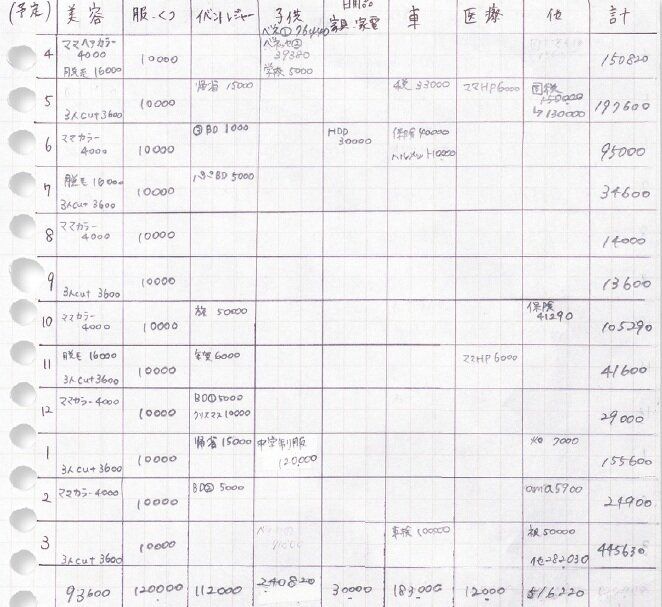 (予定) 美容 服・くつ イベントレジャー 子供 日用品 家具・家電 車 医療 他 計
ベネ① 76440
4 ママヘアカラー 4000 10000 ベネッセ② 39380 150820
脱毛 16000 学校 5000
5 3人cut 3600 10000 帰省 15000 4税 33000 ママHP 6000 国税 150000 197600
↳130000
6 ママカラー 4000 10000 ③BD 1000 HDD 30000 保険 40000 95000
ヘルメット 10000
7 脱毛 16000 10000 パパBD 5000 34600
3人cut 3600
8 ママカラー 4000 10000 14000
9 3人cut 3600 10000 13600
10 ママカラー 4000 10000 旅 50000 保険 41290 105290
11 脱毛 16000 10000 年賀 6000 ママHP 6000 41600
3人cut 3600
12 ママカラー 4000 10000 BD① 5000 29000
クリスマス 10000
1 3人cut 3600 10000 帰省 15000 中学制服 120000 7000 155600
2 ママカラー 4000 10000 BD② 5000 ama 5900 24900
3 3人cut 3600 10000 車検 100000 祝 50000 445630
他 282030
93600 120000 112000 240820 30000 183000 12000 516220